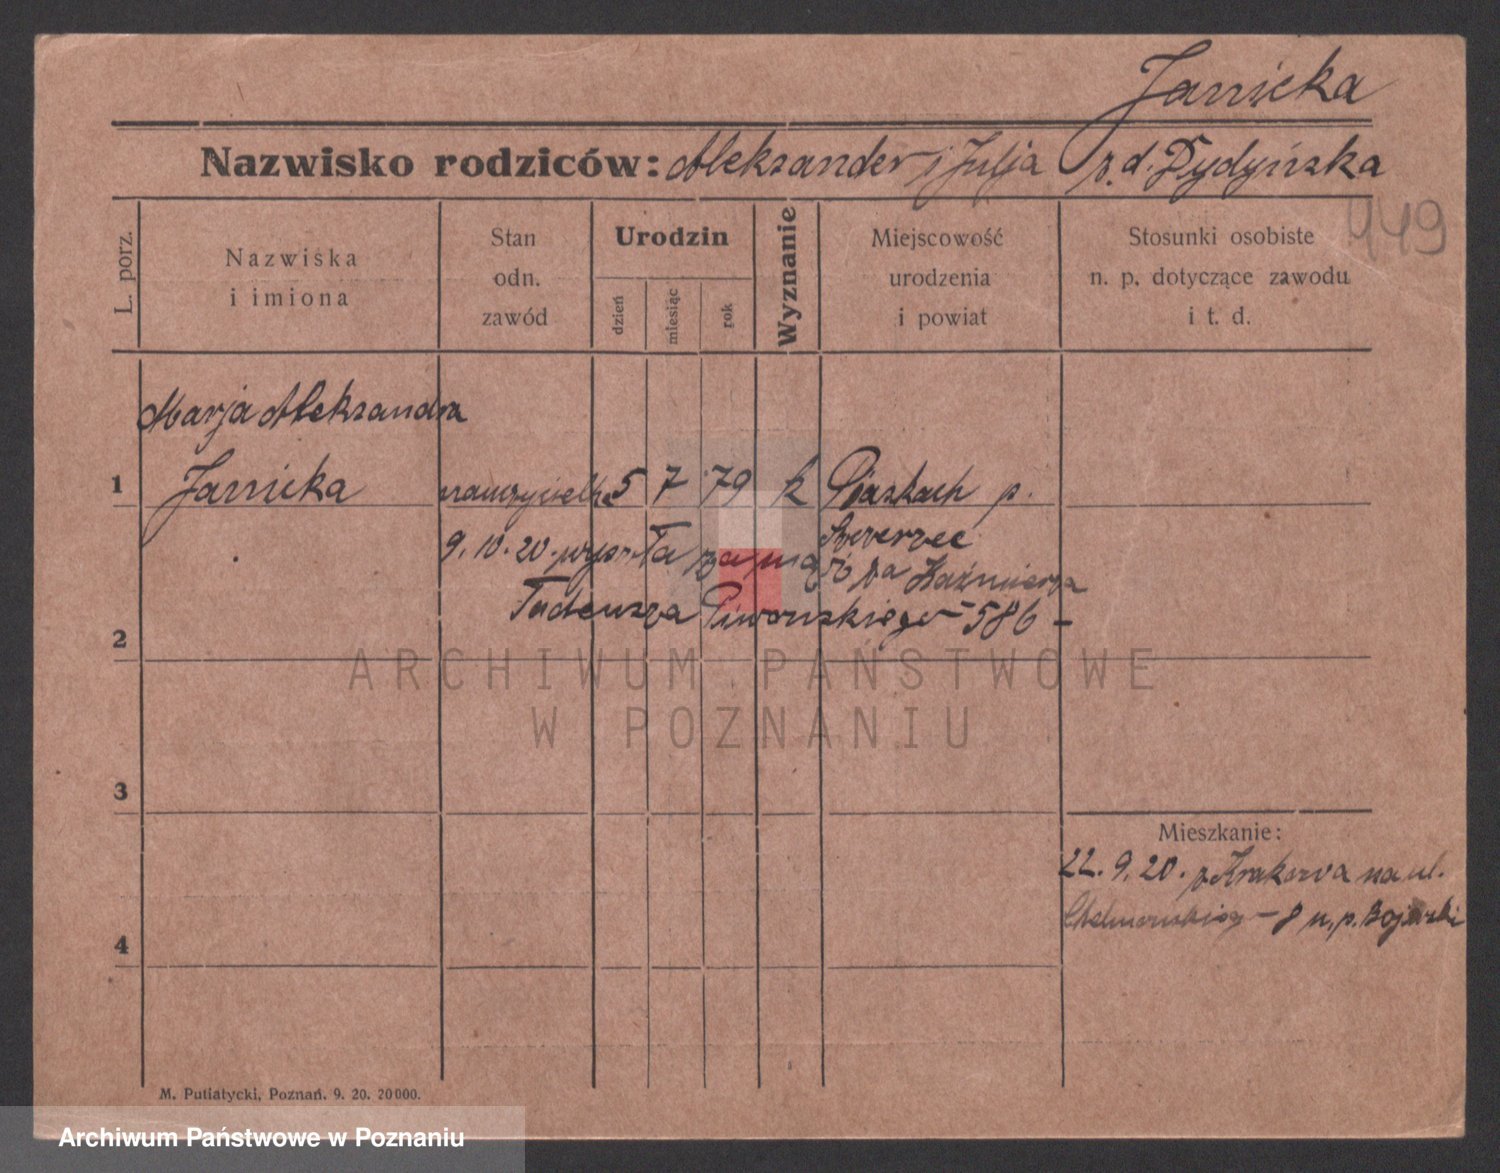 Janicka
Nazwisko rodziców: Aleksander i Julja z d. Dydyńska
949
L. porz.
Nazwiska
i imiona
Stan
odn.
zawód
Urodzin
dzień
miesiąc
rok
Wyznanie
Miejscowość
urodzenia
i powiat
Stosunki osobiste
n. p. dotyczące zawodu
i t. d.
Marja Aleksandra
1 Janicka nauczycielka 5 7 79 k Piaskach p.
9.10.20. wyszła za mąż za Kaźmierza
2 Tadeusza Piwońskiego – 586 –
ARCHIWUM PAŃSTWOWE
W POZNANIU
3
Mieszkanie:
22.9.20. z Krakowa na ul.
4 8 u p.
M. Putiatycki, Poznań. 9. 20. 20000.
Archiwum Państwowe w Poznaniu